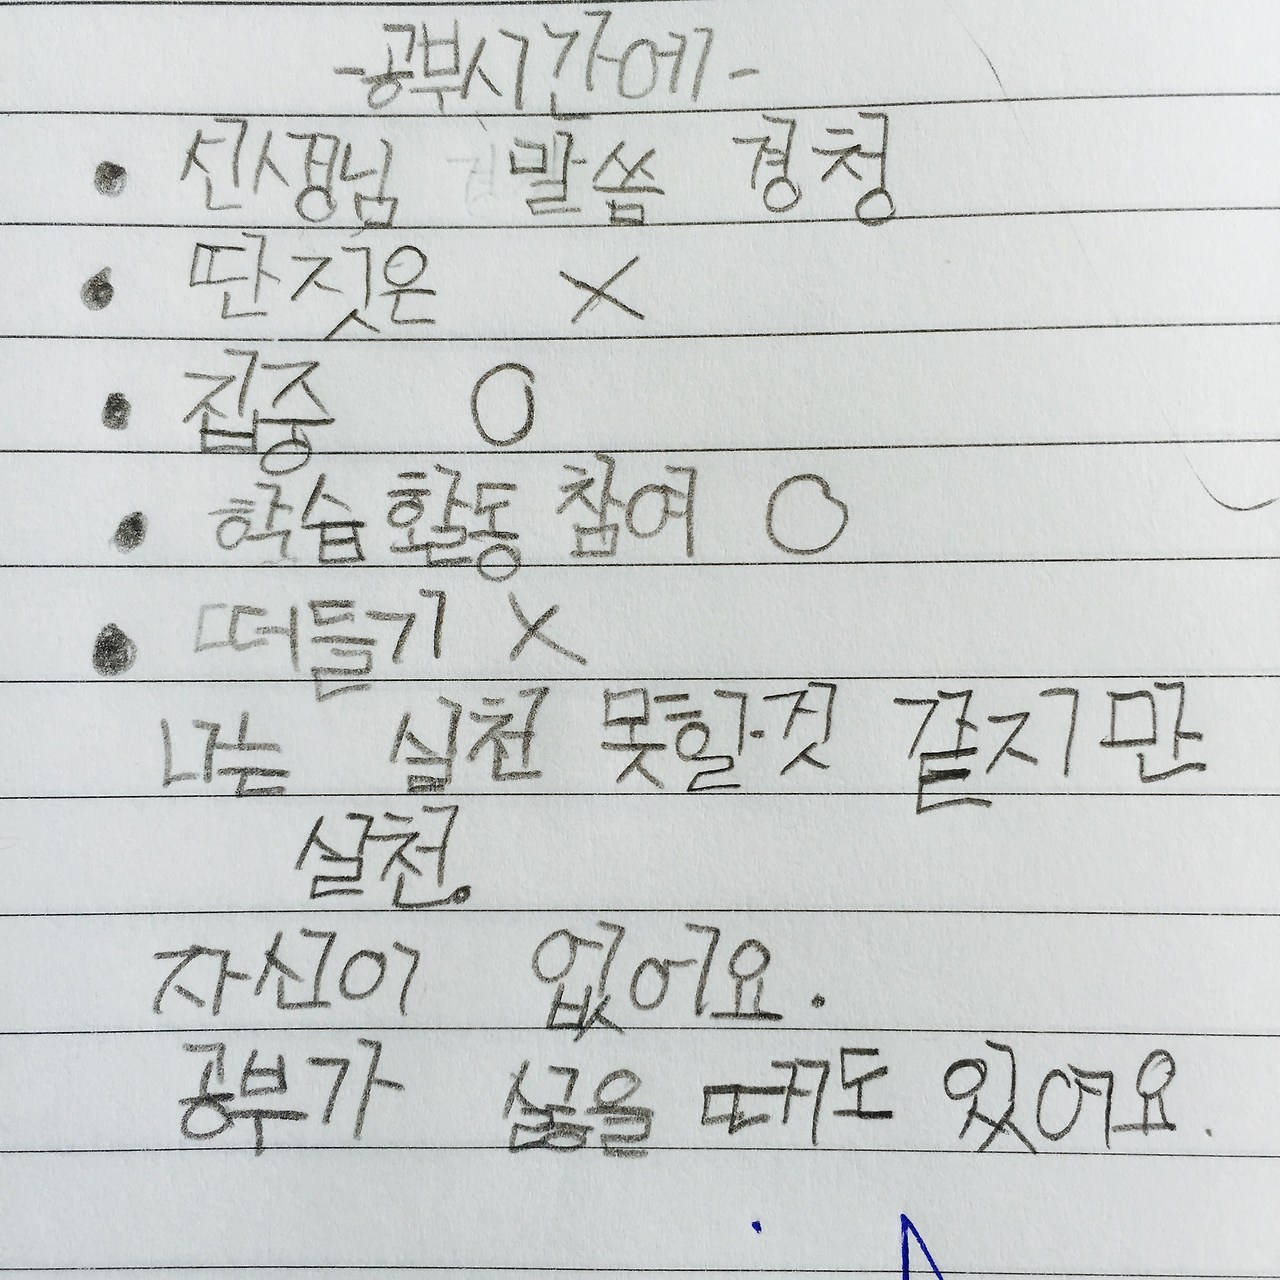 -공부시간에-
• 선생님 말씀 경청
• 딴짓은 X
• 집중 O
• 학습활동 참여 O
• 떠들기 X
나는 실천 못할것 같지만
실천.
자신이 없어요.
공부가 싫을 때도 있어요.